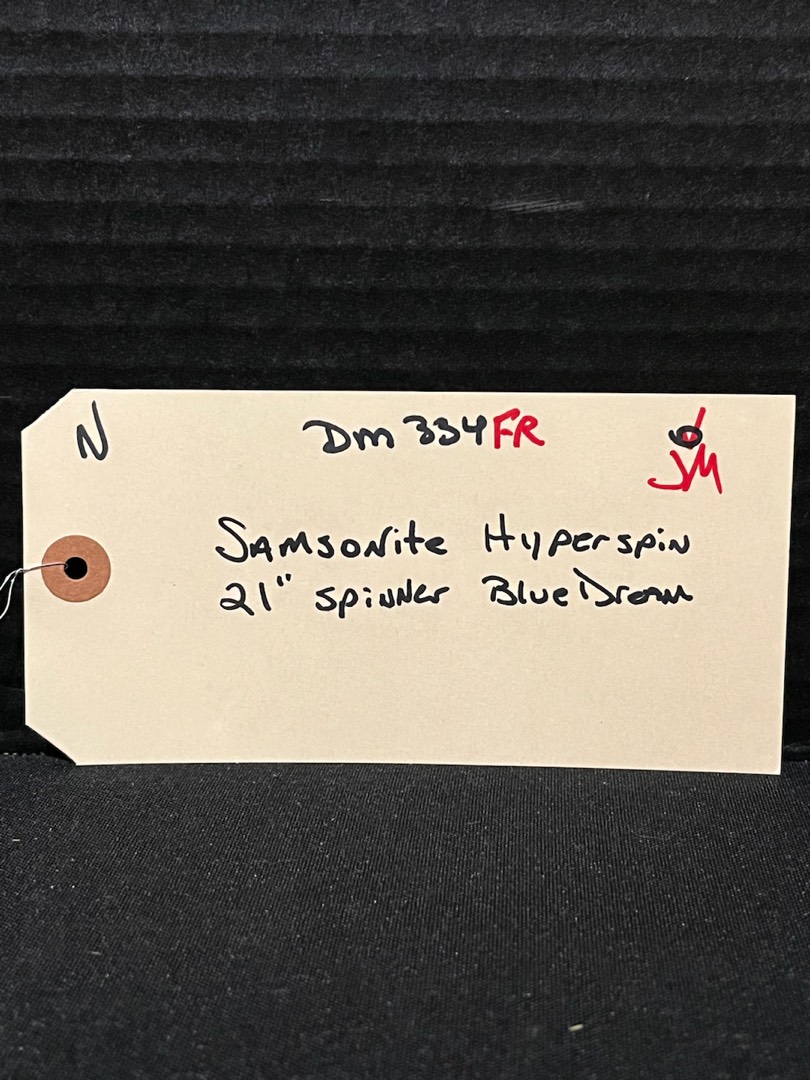 N Dm 334FR
JM
Samsonite Hyperspin
21" spinner Blue Dream